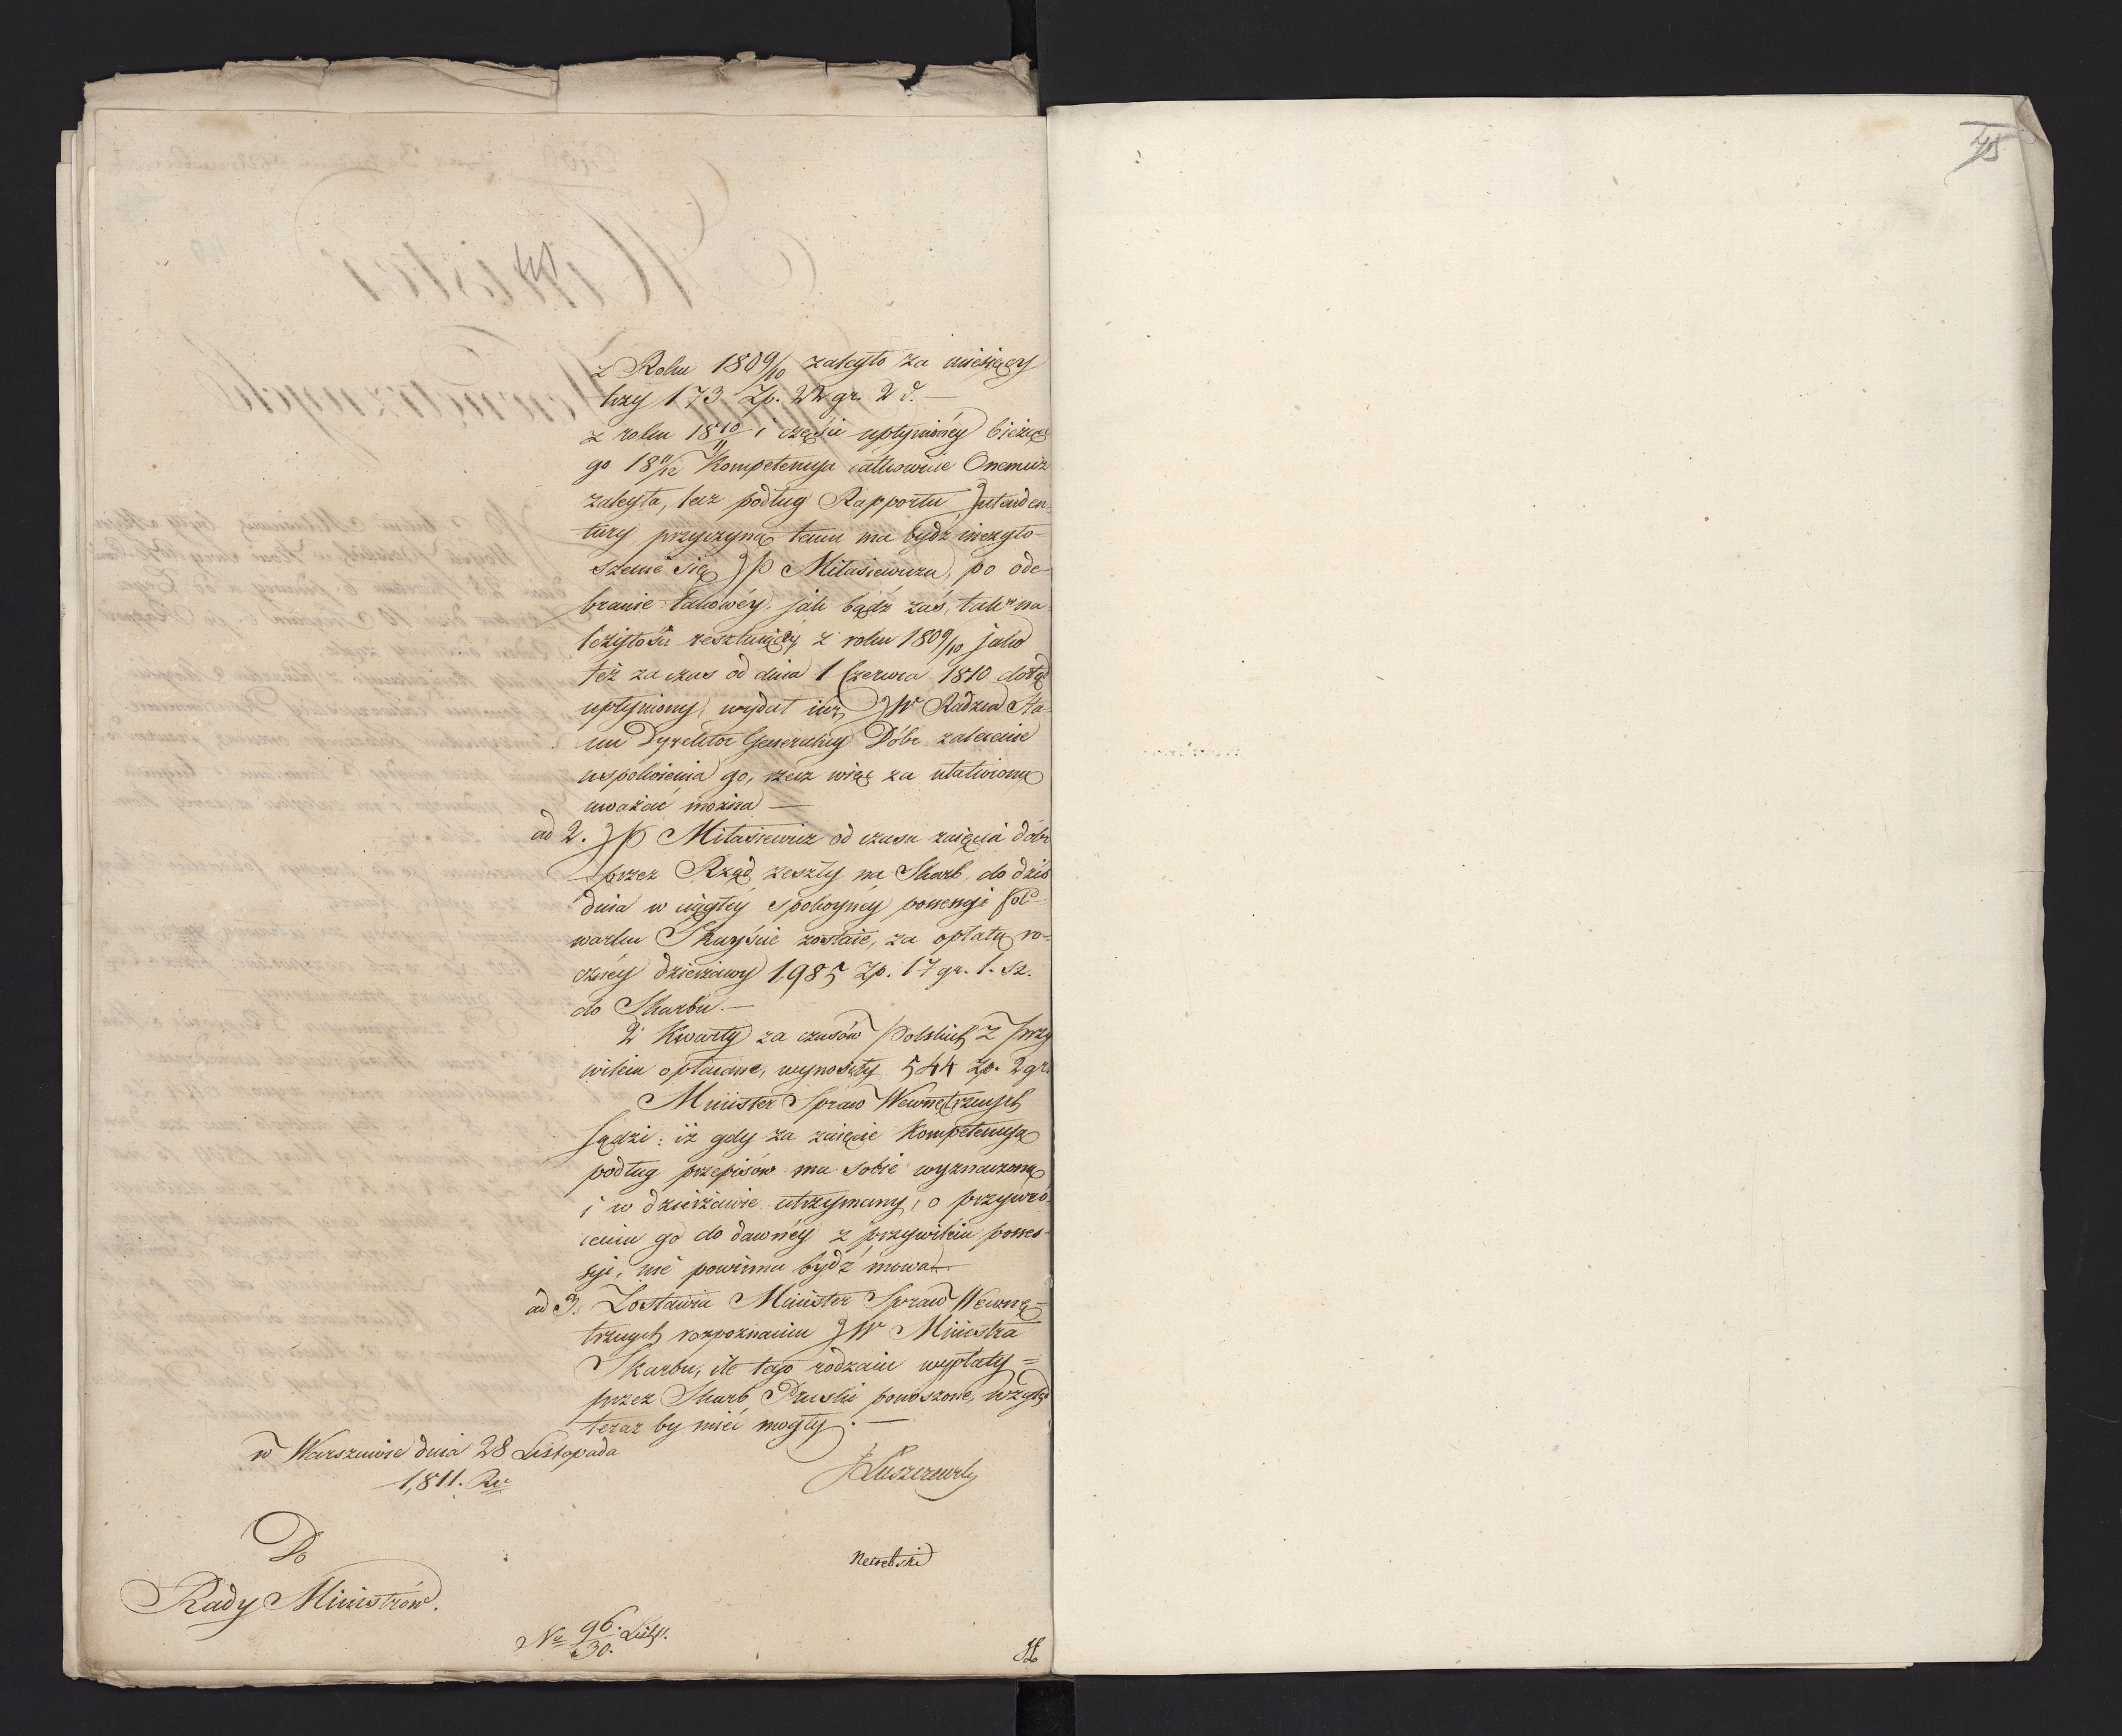 z Roku 1809/10 zaległo za miesięcy
trzy 173 Zp. 22 gr. 2 d. —
z roku 1810/11 i części upłynionéy bieżące
go 1811/12 Kompetencya całkowicie Onemuż
zaległa, lecz podług Rapportu Intenden-
tury przyczyną temu ma bydź niezgło-
szenie się JP Miłasiewicza, po ode-
branie takowéy, jak bądź zaś, tak na-
leżytość resztuiącéy z roku 1809/10 jako
też za czas od dnia 1 Czerwca 1810 dotąd
upłyniony, wydał iuż JW Radzca Sta-
nu Dyrektor Generalny Dóbr zalecenie
uspokoienia go, rzecz więc za ułatwioną
uważać można —
ad 2. JP Miłasiewicz od czasu zaięcia dóbr
przez Rząd zeszły na Skarb, do dziś
dnia w ciągłéy spokoynéy possessyi fol-
warku Skuyście zostaie, za opłatą ro-
cznéy dzierżawy 1,985 Zp. 17 gr. 1. sz.
do Skarbu. —
2 Kwarty za czasów Polskich z Przy
wileiu opłacane, wynosiły 544 Zp. 2 gr.
Minister Spraw Wewnętrznych
sądzi: iż gdy za zaięcie Kompetencyą
podług przepisów ma sobie wyznaczoną
i w dzierżawie utrzymany, o przywró-
ceniu go do dawnéy z przywileiu posses-
syi, nie powinna bydź mowa. —
ad 3. Zostawia Minister Spraw Wewnę-
trznych rozpoznaniu JW Ministra
Skarbu, ile tego rodzaiu wypłaty =
przez Skarb Pruski ponoszone, wzgląd
teraz by mieć mogły. —
w Warszawie dnia 28 Listopada
1,811. Ru
JŁuszczewski
Do
Rady Ministrów.
No 96./30. Listp.
75